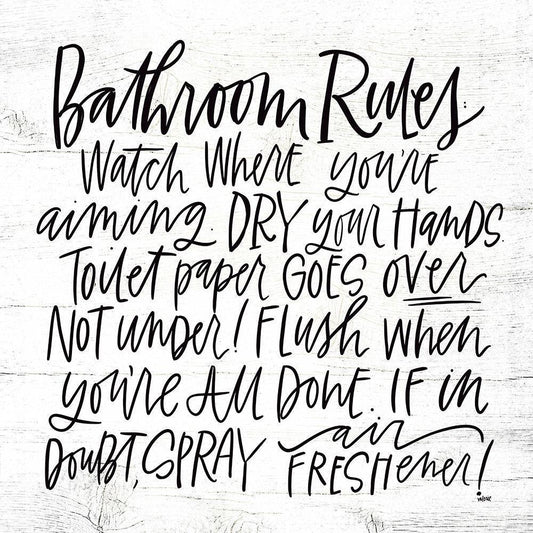 Bathroom Rules:
Watch Where you're
aiming. DRY your Hands.
Toilet paper GOES over
Not under! Flush when
you're All Done. If in
Doubt, SPRAY air
FRESHener!